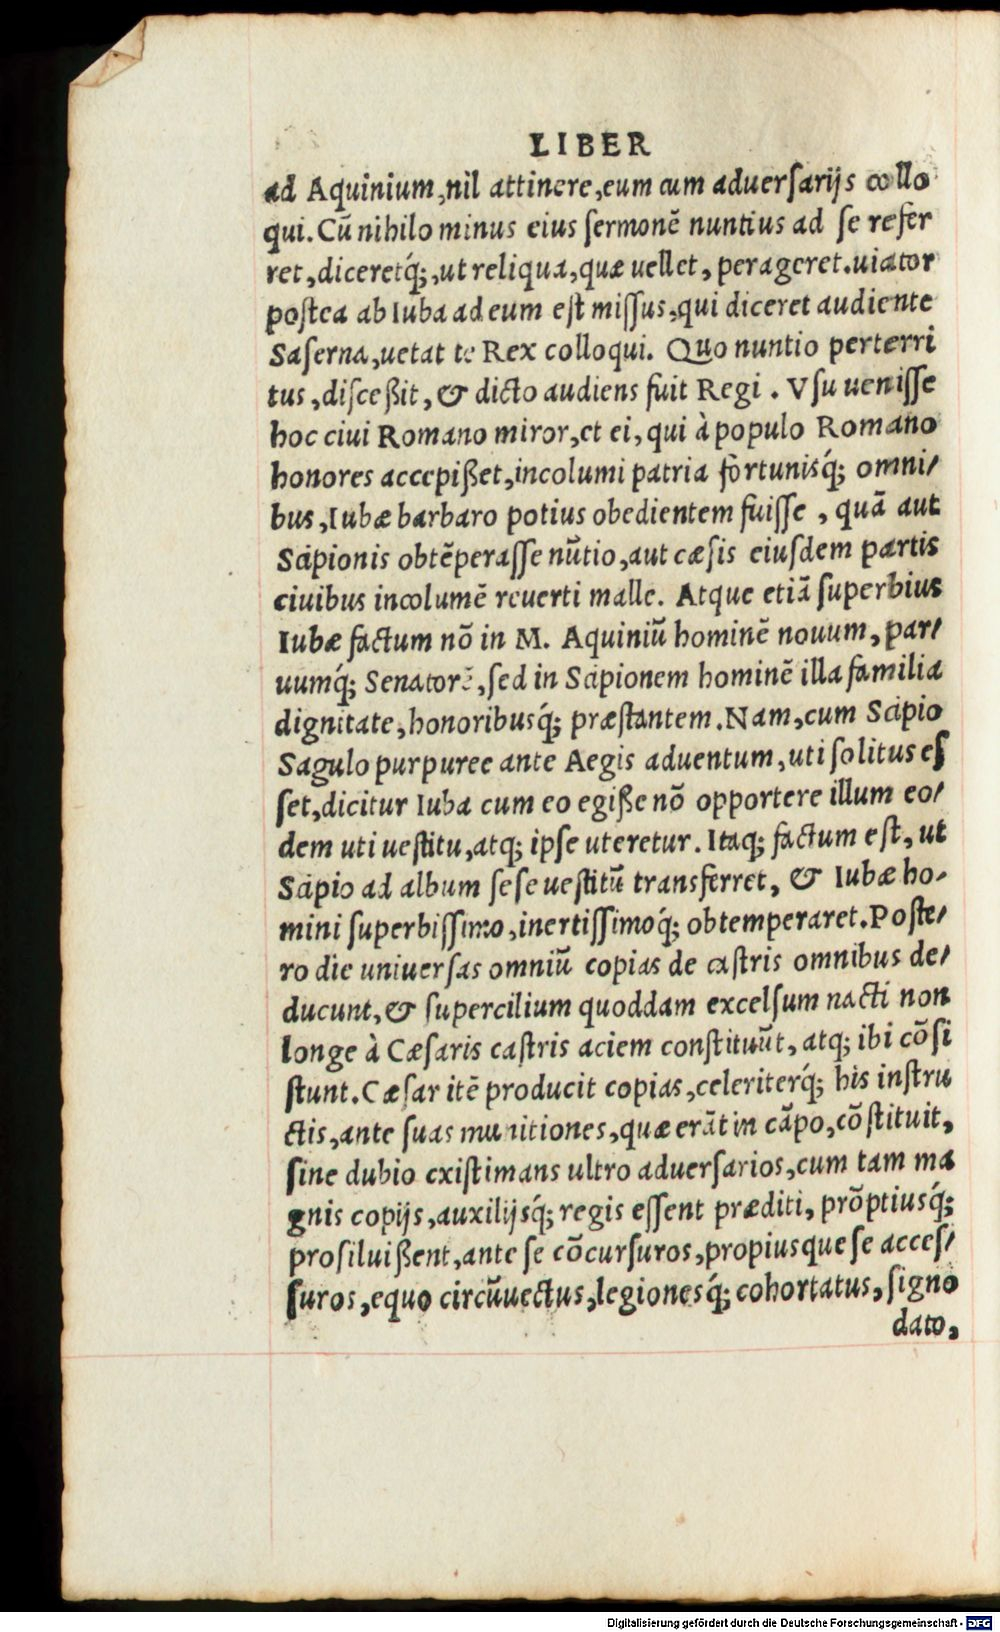 LIBER
ad Aquinium, nil attinere, eum cum aduersarijs collo
qui. Cū nihilo minus eius sermonē nuntius ad se refer
ret, diceretq́;, ut reliqua, quæ uellet, perageret. uiator
postea ab Iuba ad eum est missus, qui diceret audiente
Saserna, uetat te Rex colloqui. Quo nuntio perterri
tus, disceßit, & dicto audiens fuit Regi. Vsu uenisse
hoc ciui Romano miror, et ei, qui à populo Romano
honores accepißet, incolumi patria fortunisq́; omni/
bus, Iubæ barbaro potius obedientem fuisse, quā aut
Scipionis obtēperasse nūtio, aut cæsis eiusdem partis
ciuibus incolumē reuerti malle. Atque etiā superbius
Iubæ factum nō in M. Aquiniū hominē nouum, par/
uumq́; Senatorē, sed in Scipionem hominē illa familia
dignitate, honoribusq́; præstantem. Nam, cum Scipio
Sagulo purpuree ante Aegis aduentum, uti solitus es
set, dicitur Iuba cum eo egiße nō opportere illum eo/
dem uti uestitu, atq; ipse uteretur. Itaq; factum est, ut
Scipio ad album sese uestitū transferret, & Iubæ ho-
mini superbissimo, inertissimoq́; obtemperaret. Poste/
ro die uniuersas omniū copias de castris omnibus de/
ducunt, & supercilium quoddam excelsum nacti non
longe à Cæsaris castris aciem constituūt, atq; ibi cōsi
stunt. Cæsar itē producit copias, celeriterq́; his instru
ctis, ante suas munitiones, quæ erāt in cāpo, cōstituit,
sine dubio existimans ultro aduersarios, cum tam ma
gnis copijs, auxilijsq́; regis essent præditi, prōptiusq́;
prosiluißent, ante se cōcursuros, propiusque se acces/
suros, equo circūuectus, legionesq́; cohortatus, signo
dato,
Digitalisierung gefördert durch die Deutsche Forschungsgemeinschaft - DFG